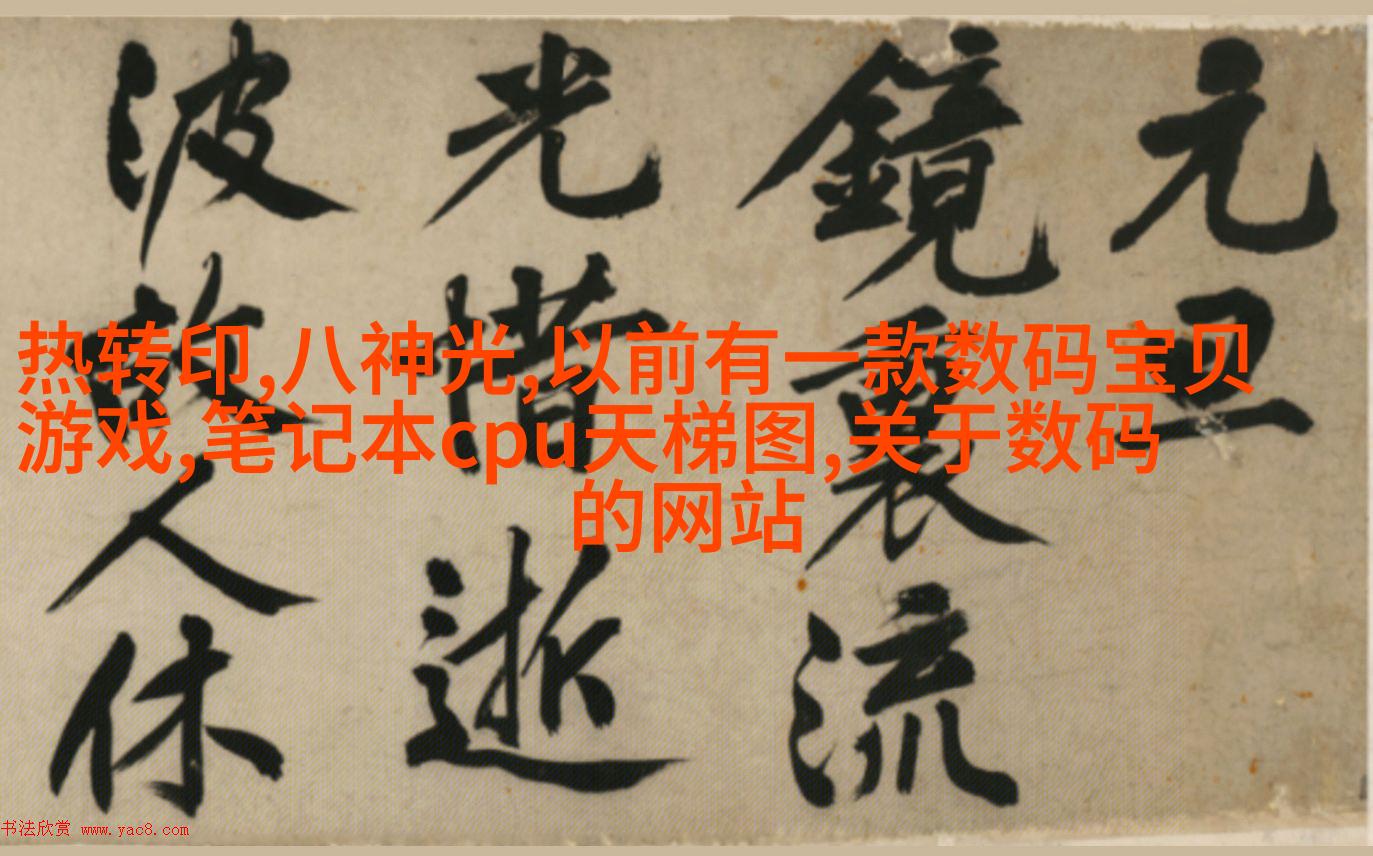 元
鏡裏流
光惜逝
波故人休
热转印,八神光,以前有一款数码宝贝
游戏,笔记本cpu天梯图,关于数码
的网站
书法欣赏 www.yac8.com